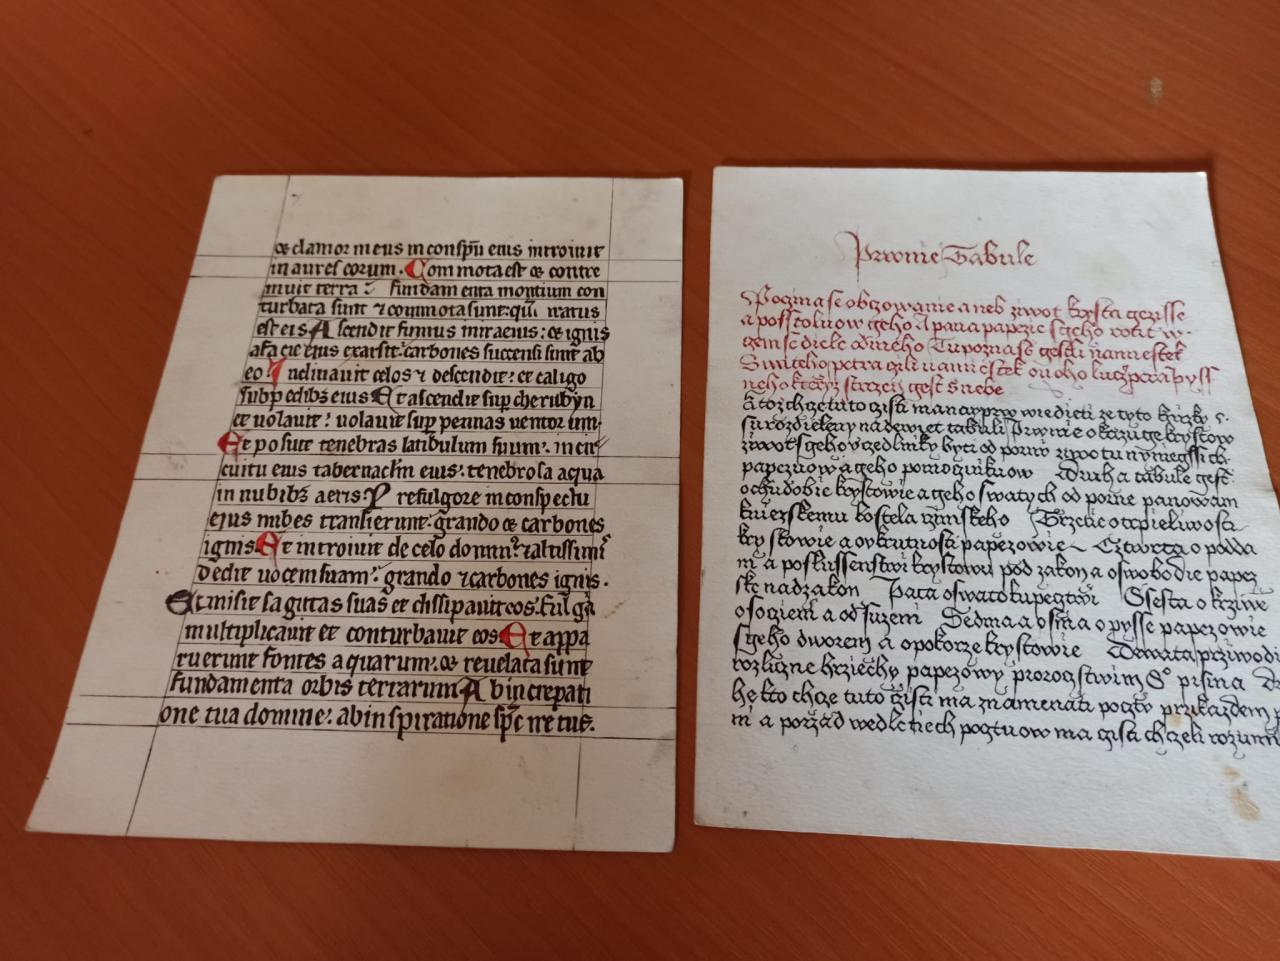 & clamor meus in conspu eius introiuit
in aures eorum. Commota est & contre
muit terra: fundamenta montium con
turbata sunt ⁊ commota sunt: qm iratus
est eis Ascendit fumus in ira eius: & ignis
a facie eius exarsit: carbones succensi sunt ab
eo Inclinauit celos ⁊ descendit: et caligo
sub pedibꝫ eius Et ascendit sup cherubyn
et uolauit: uolauit sup pennas uentor um
Et posuit tenebras latibulum suum: in cir
cuitu eius tabernaclm eius: tenebrosa aqua
in nubibꝫ aeris Pre fulgore in conspectu
ejus nubes transierunt: grando & carbones
ignis Et intronuit de celo domin: ⁊ altissim
dedit uocem suam: grando ⁊ carbones ignis.
Et misit sagittas suas et dissipauit eos: fulga
multiplicauit et conturbauit eos Et appa
ruerunt fontes aquarum: & reuelata sunt
fundamenta orbis terrarum Ab increpati
one tua domine: ab inspiratione spc ire tue.
Prwnie Tabule
Poczina se obczowanie a neb ziwot krysta gezisse
a posstoluow geho A pana papezie s geho rotu w
gem se diele Tu pozna se gestli namiestek
Swateho petra czili namiestek onoho lucypera pyss
neho kteryz strzen gest s nebe
A toz chce tuto czisti ma naypyrw wiediti ze tyto knizky
su rozdieleny na dewiet tabuli Prwnie okazuge krystow
ziwot s geho vczedlniky byti od porny ziwotu nyniegssich
papezuow a geho pomocznikuow Druha tabule gest
o chudobie krystowie a geho swatych od porne panowani
kniezskemu kostela rzimskeho Trzetie o trpieliwosti
krystowie a o vkrutnosti papezowie Cztwrta o podda
ni a poslussenstwi krystowu pod zakon a oswobodie papez
ske nad zakon Pata o swatokupectwi Ssesta o krziwe
o sogieni a odsuzeni Sedma a osma o pysse papezowie
s geho dworem a o pokorze krystowie Dewata prziwodi
rozlicne hrziechy papezowy proroctwim Sº pisma
he kto chce tuto czisti ma znamenati poczty przi kazdem
ni a porzad wedle tiech pocztuow ma czisti chczeli rozumi